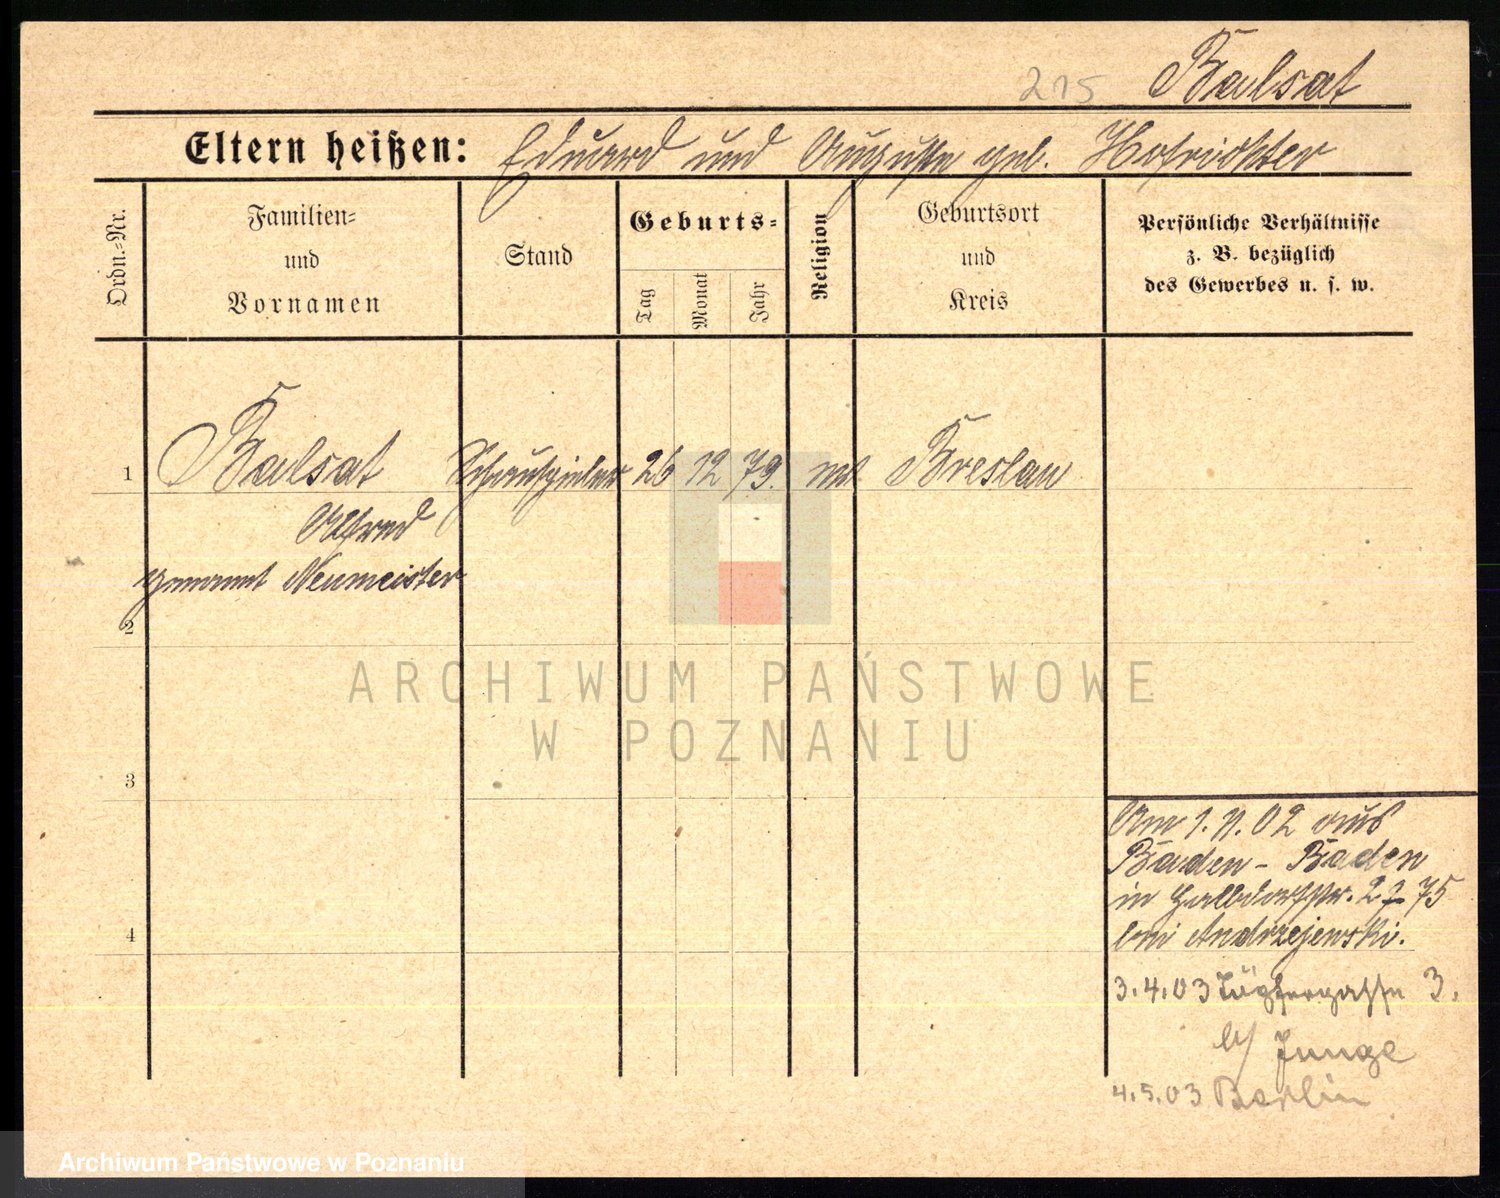 215 Balsat
Eltern heißen: Eduard und Auguste geb. Hofrichter
Ordn.-Nr.
Familien-
und
Vornamen
Stand
Geburts-
Tag
Monat
Jahr
Religion
Geburtsort
und
Kreis
Persönliche Verhältnisse
z. B. bezüglich
des Gewerbes u. s. w.
1 Balsat Schauspieler 26 12 79. Breslau
Alfred
genannt Neumeister
2
ARCHIWUM PAŃSTWOWE
W POZNANIU
3
Am 1. 11. 02 aus
Baden-Baden
in Halbdorfstr. 27 75
bei Andrzejewski.
4
3.4.03 3.
b/ Junge
4.5.03 Berlin
Archiwum Państwowe w Poznaniu